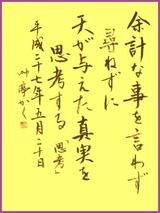 余計な事を言わず
尋ねずに
天が与えた真実を
思考する「思考」
平成二十七年五月二十日